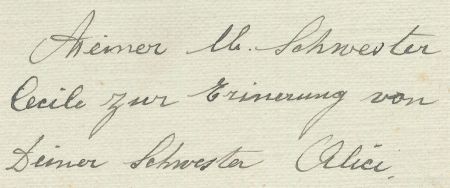 Meiner lb. Schwester
Cecile zur Erinerung von
Deiner Schwester Alici.